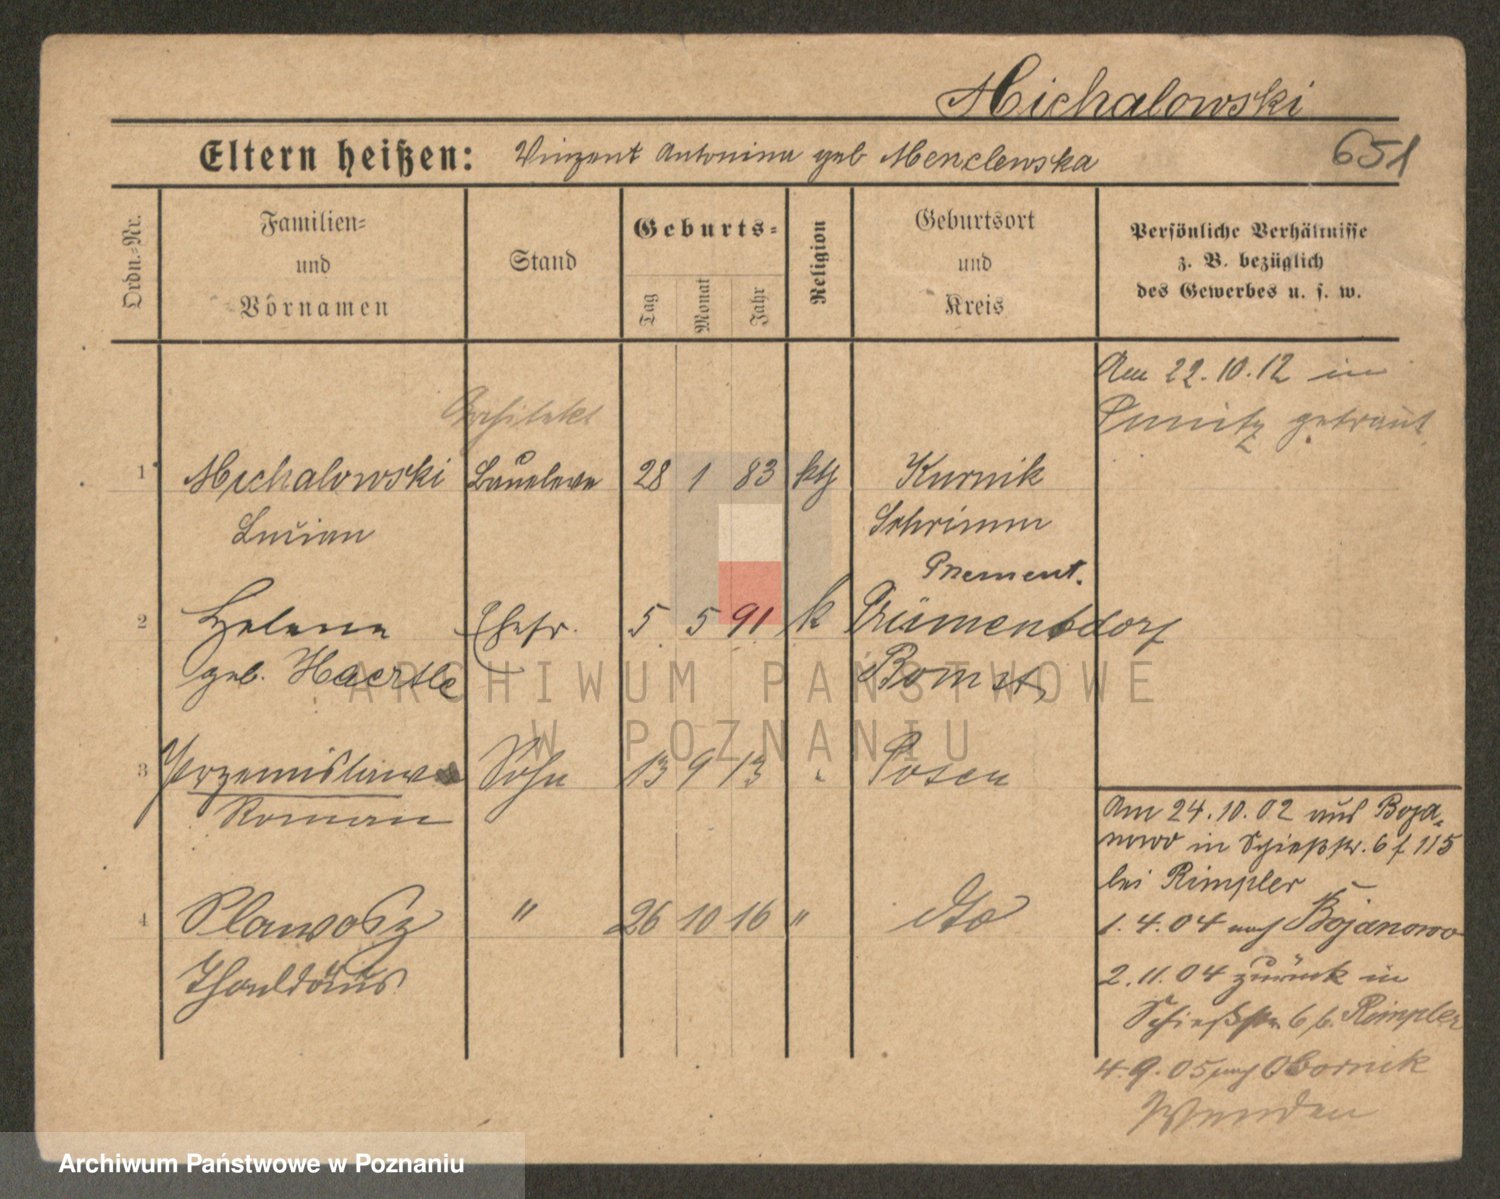 Michalowski
Eltern heißen: Vinzent Antonina geb Menclewska
651
Ordn.-Nr.
Familien-
und
Vornamen
Stand
Geburts-
Tag
Monat
Jahr
Religion
Geburtsort
und
Kreis
Persönliche Verhältnisse
z. B. bezüglich
des Gewerbes u. s. w.
Am 22.10.12 in
Punitz getraut
Architekt
1 Michalowski Baueleve 28 1 83 kth Kurnik
Lucian Schrimm
Priment.
2 Helene Ehefr. 5 5 91 k Primentdorf
geb. Haertle Bomst
3 Przemislaw Sohn 13 9 13 " Posen
Roman
4 Slawosz " 26 10 16 " dto
Thaddäus
Am 24.10.02 aus Boja-
nowo in Schießstr. 6 f 115
bei Rimpler
1.4.04 nach Bojanowo
2.11.04 zurück in
Schießstr 6 b. Rimpler
4.9.05 nach Obornik
Wenden
ARCHIWUM PAŃSTWOWE
W POZNANIU
Archiwum Państwowe w Poznaniu